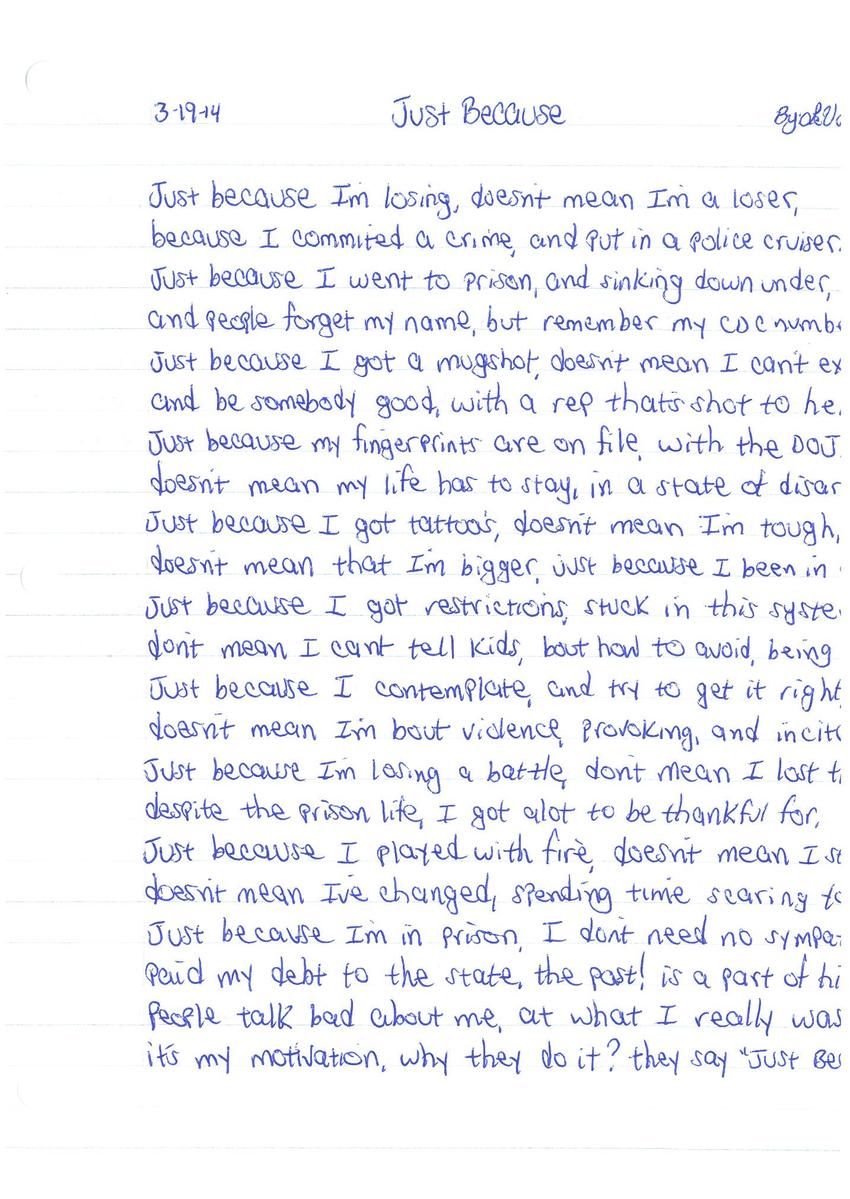 3-19-14 Just Because
Just because I'm losing, doesn't mean I'm a loser,
because I commited a crime, and put in a police cruiser.
Just because I went to prison, and sinking down under,
and people forget my name, but remember my CDC
Just because I got a mugshot, doesn't mean I can't
and be somebody good, with a rep that's shot to
Just because my fingerprints are on file, with the DOJ
doesn't mean my life has to stay, in a state of
Just because I got tattoo's, doesn't mean I'm tough,
doesn't mean that I'm bigger, just because I been in
Just because I got restrictions, stuck in this
don't mean I can't tell kids, bout how to avoid, being
Just because I contemplate, and try to get it right
doesn't mean I'm bout violence, provoking, and
Just because I'm losing a battle, don't mean I lost
despite the prison life, I got alot to be thankful for,
Just because I played with fire, doesn't mean I
doesn't mean I've changed, spending time scaring
Just because I'm in prison, I don't need no
paid my debt to the state, the past! is a part of
People talk bad about me, at what I really was
it's my motivation, why they do it? they say "Just